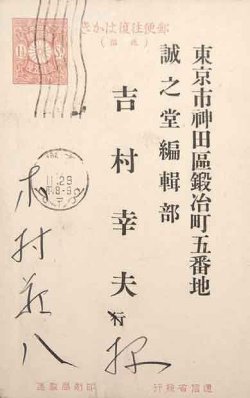 郵便往復はかき
(返信)
東京市神田區鍛冶町五番地
誠之堂編輯部
吉村幸夫行
木村荘八
遞信省發行
印刷局製造